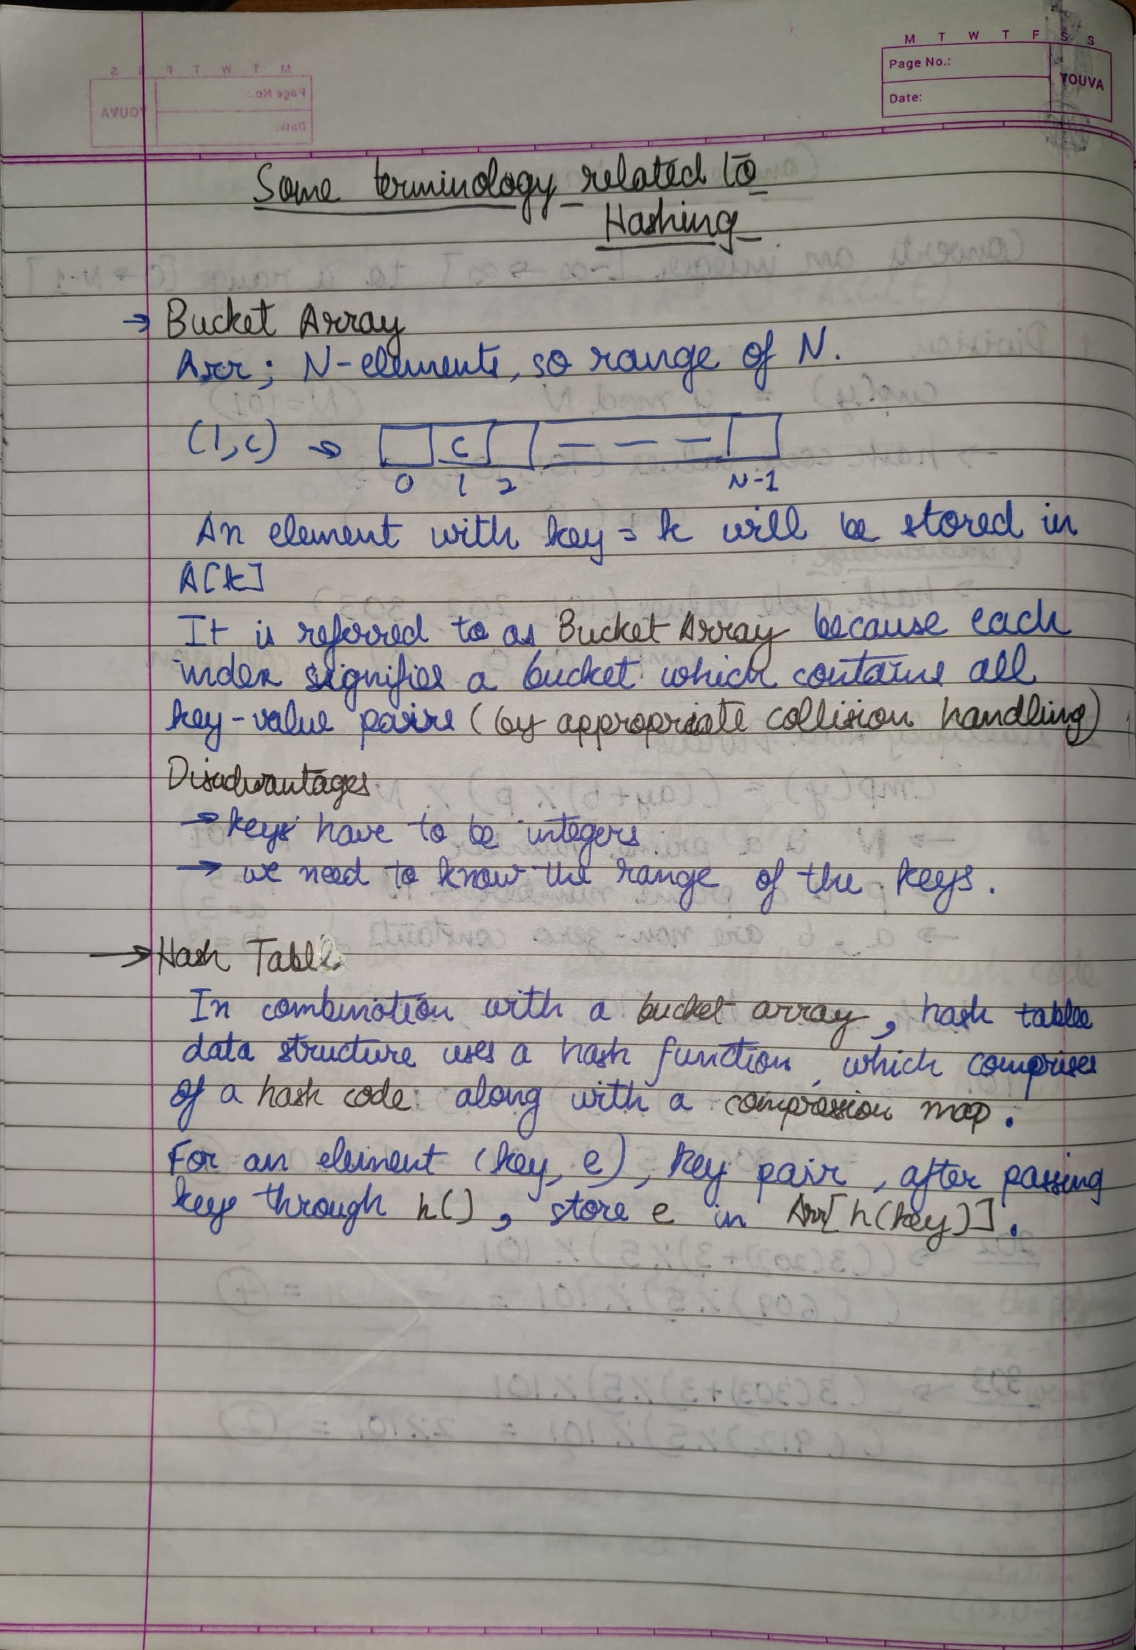 M T W T F S S
Page No.:
YOUVA
Date:
Some terminology related to
Hashing
→ Bucket Array
Arr; N-elements, so range of N.
(1,c) → c
0 1 2 N-1
An element with key = k will be stored in
A[k]
It is referred to as Bucket Array because each
index signifies a bucket which contains all
key-value pairs (by appropriate collision handling)
Disadvantages
→ keys have to be integers
→ we need to know the range of the keys.
→ Hash Table
In combination with a bucket array, hash table
data structure uses a hash function, which comprises
of a hash code along with a compression map.
For an element (key, e), key pair, after passing
keys through h(), store e in Arr[h(key)].